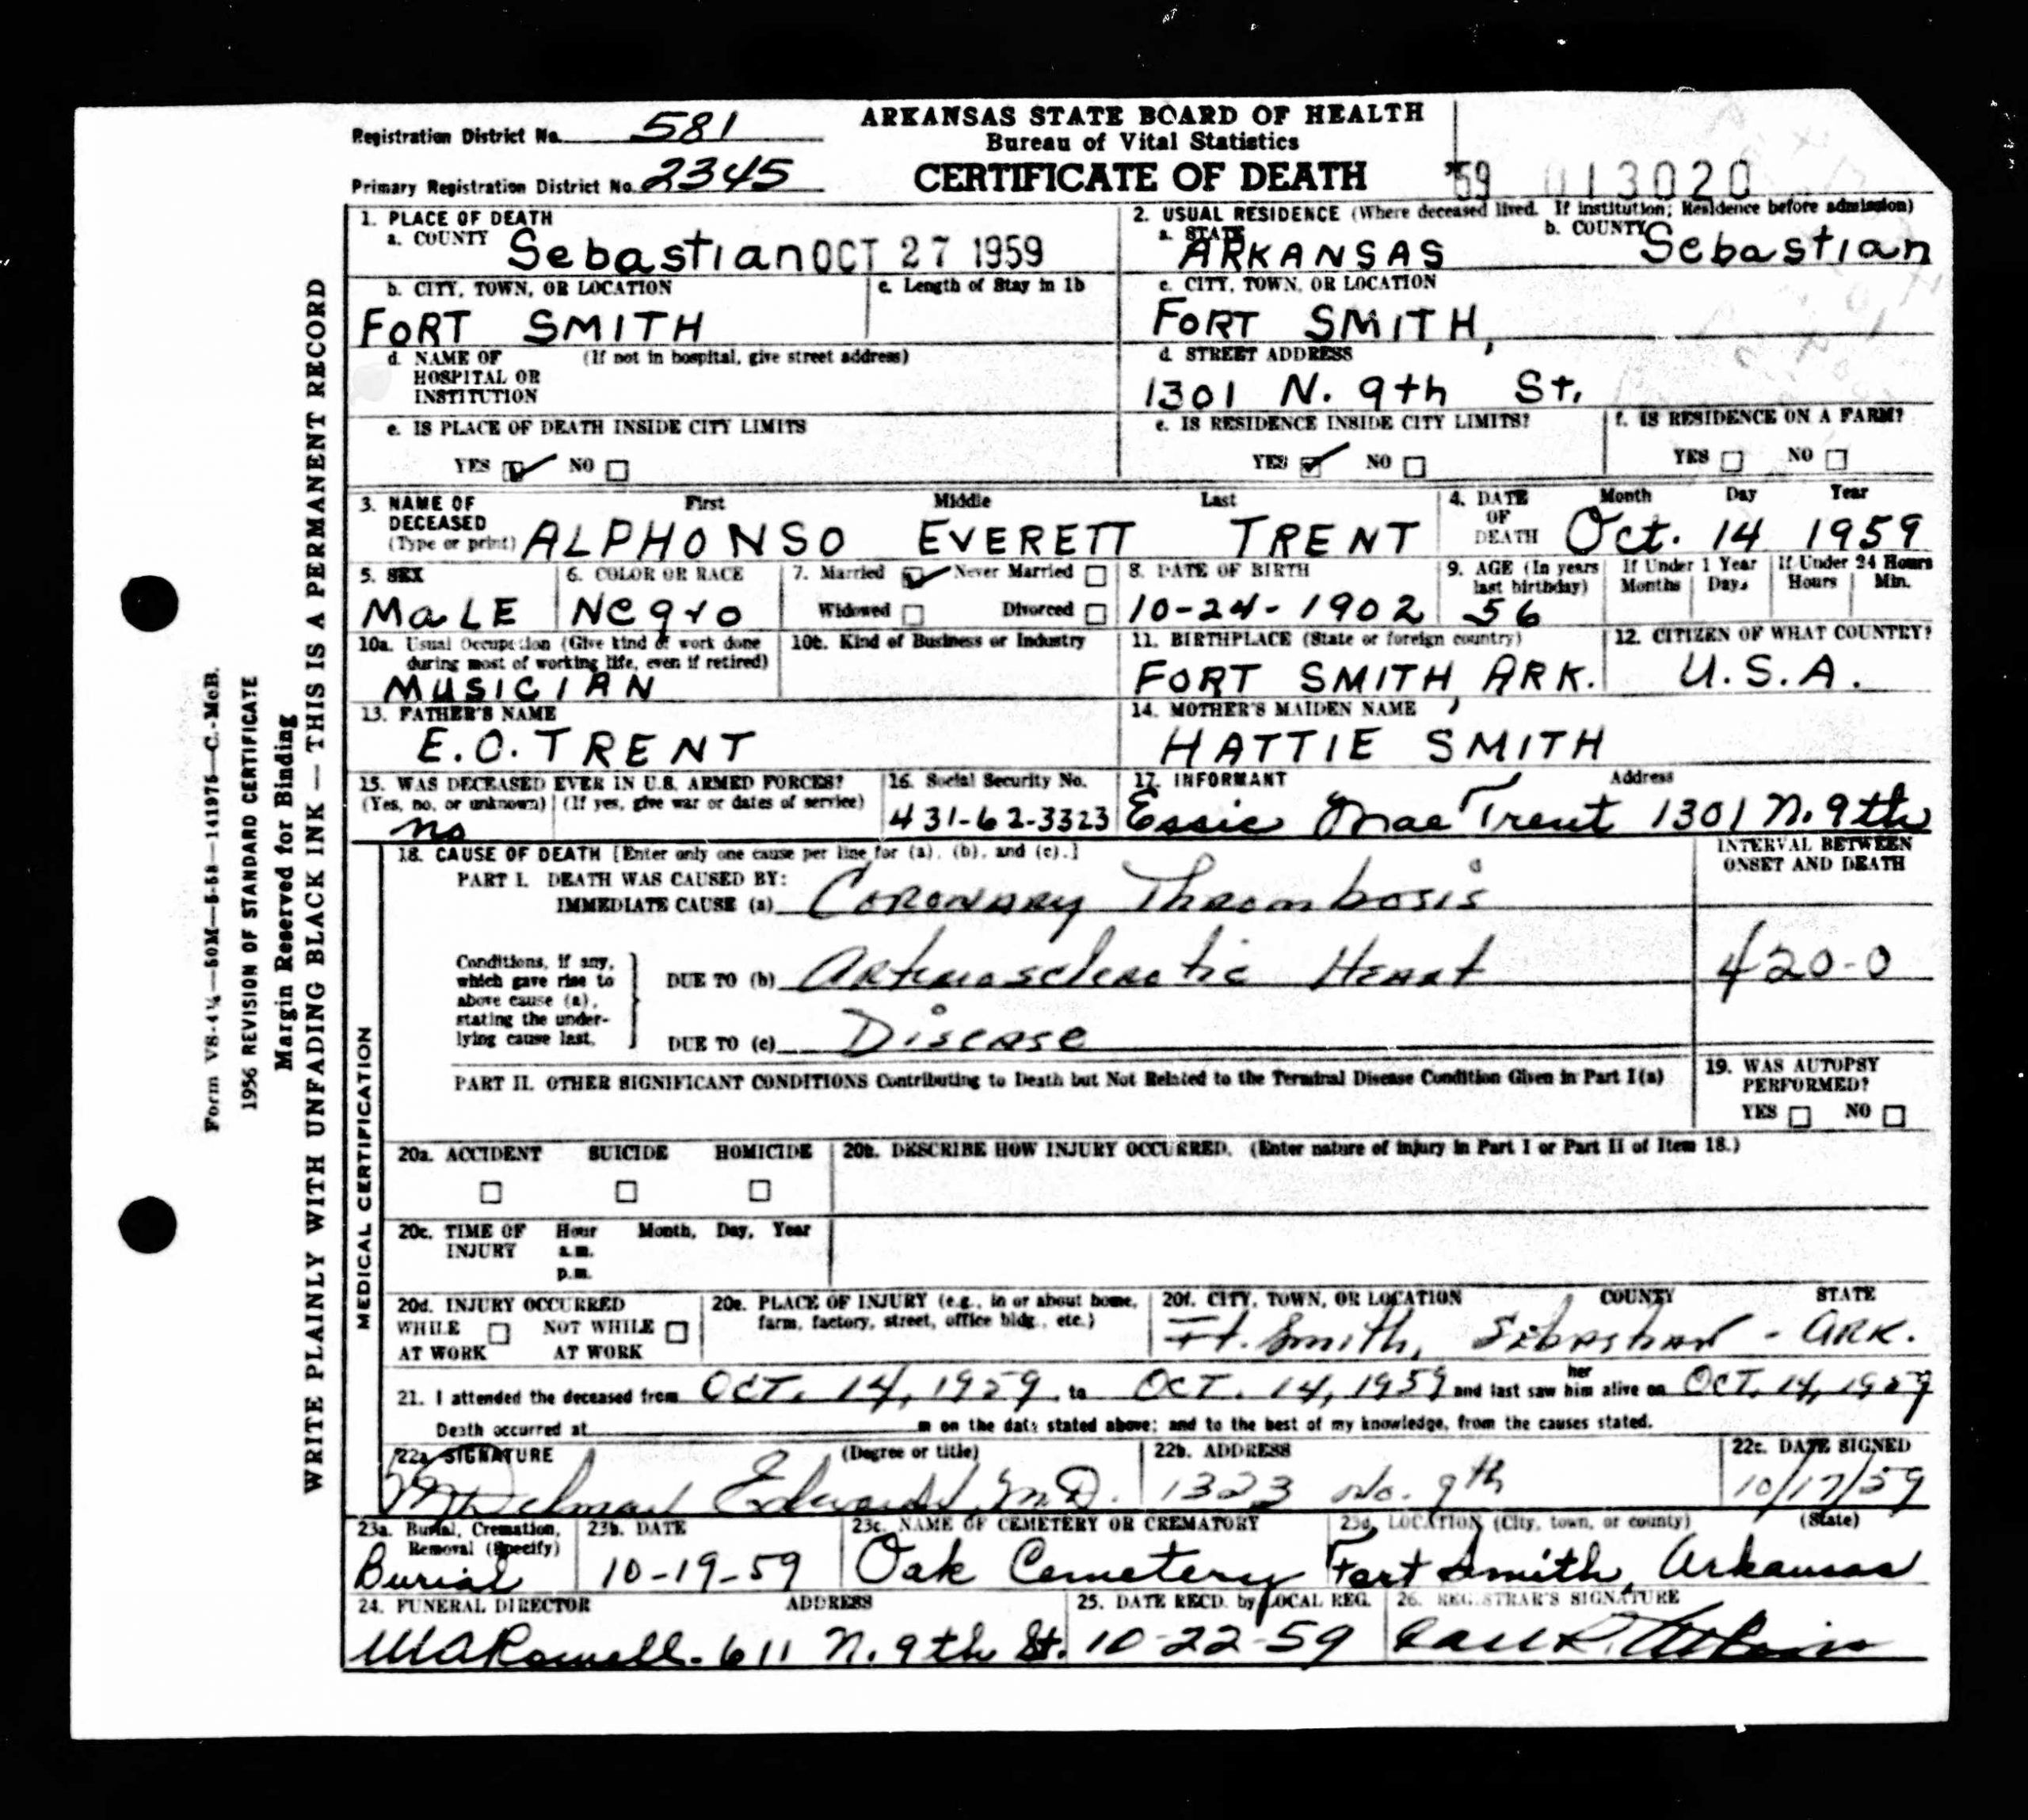 Registration District No. 581
Primary Registration District No. 2345
ARKANSAS STATE BOARD OF HEALTH
Bureau of Vital Statistics
CERTIFICATE OF DEATH
59 013020
1. PLACE OF DEATH
a. COUNTY Sebastian OCT 27 1959
2. USUAL RESIDENCE (Where deceased lived. If institution; Residence before admission)
a. STATE ARKANSAS b. COUNTY Sebastian
b. CITY, TOWN, OR LOCATION FORT SMITH
c. Length of Stay in 1b
c. CITY, TOWN, OR LOCATION
FORT SMITH,
d. NAME OF HOSPITAL OR INSTITUTION (If not in hospital, give street address)
d. STREET ADDRESS
1301 N. 9th St.
e. IS PLACE OF DEATH INSIDE CITY LIMITS
YES NO
e. IS RESIDENCE INSIDE CITY LIMITS?
YES NO
f. IS RESIDENCE ON A FARM?
YES NO
3. NAME OF DECEASED (Type or print)
First Middle Last
ALPHONSO EVERETT TRENT
4. DATE OF DEATH
Month Day Year
Oct. 14 1959
5. SEX
MaLE
6. COLOR OR RACE
Negro
7. Married Never Married
Widowed Divorced
8. DATE OF BIRTH
10-24-1902
9. AGE (In years last birthday)
56
If Under 1 Year
Months Days
If Under 24 Hours
Hours Min.
10a. Usual Occupation (Give kind of work done during most of working life, even if retired)
MUSICIAN
10b. Kind of Business or Industry
11. BIRTHPLACE (State or foreign country)
FORT SMITH, ARK.
12. CITIZEN OF WHAT COUNTRY?
U.S.A.
13. FATHER'S NAME
E.O. TRENT
14. MOTHER'S MAIDEN NAME
HATTIE SMITH
15. WAS DECEASED EVER IN U.S. ARMED FORCES?
(Yes, no, or unknown) (If yes, give war or dates of service)
no
16. Social Security No.
431-62-3323
17. INFORMANT Address
Essie Mae Trent 1301 N. 9th
18. CAUSE OF DEATH [Enter only one cause per line for (a), (b), and (c).]
INTERVAL BETWEEN ONSET AND DEATH
PART I. DEATH WAS CAUSED BY:
IMMEDIATE CAUSE (a) Coronary Thrombosis
Conditions, if any, which gave rise to above cause (a), stating the underlying cause last.
DUE TO (b) Arteriosclerotic Heart
420-0
DUE TO (c) Disease
PART II. OTHER SIGNIFICANT CONDITIONS Contributing to Death but Not Related to the Terminal Disease Condition Given in Part I(a)
19. WAS AUTOPSY PERFORMED?
YES NO
20a. ACCIDENT SUICIDE HOMICIDE
20b. DESCRIBE HOW INJURY OCCURRED. (Enter nature of injury in Part I or Part II of Item 18.)
20c. TIME OF INJURY
Hour Month, Day, Year
a.m.
p.m.
20d. INJURY OCCURRED
WHILE AT WORK NOT WHILE AT WORK
20e. PLACE OF INJURY (e.g., in or about home, farm, factory, street, office bldg., etc.)
20f. CITY, TOWN, OR LOCATION COUNTY STATE
Ft. Smith, Sebastian - ARK.
21. I attended the deceased from OCT. 14, 1959 to OCT. 14, 1959 and last saw her him alive on OCT. 14, 1959
Death occurred at m on the date stated above; and to the best of my knowledge, from the causes stated.
22a. SIGNATURE (Degree or title)
Edwards, M.D.
22b. ADDRESS
1323 No. 9th
22c. DATE SIGNED
10/17/59
23a. Burial, Cremation, Removal (Specify)
Burial
23b. DATE
10-19-59
23c. NAME OF CEMETERY OR CREMATORY
Oak Cemetery
23d. LOCATION (City, town, or county) (State)
Fort Smith, Arkansas
24. FUNERAL DIRECTOR ADDRESS
Rowell - 611 N. 9th St.
25. DATE RECD. by LOCAL REG.
10-22-59
26. REGISTRAR'S SIGNATURE
MEDICAL CERTIFICATION
WRITE PLAINLY WITH UNFADING BLACK INK — THIS IS A PERMANENT RECORD
Margin Reserved for Binding
1956 REVISION OF STANDARD CERTIFICATE
Form VS-4¼—50M—5-58—141975—C.-McB.